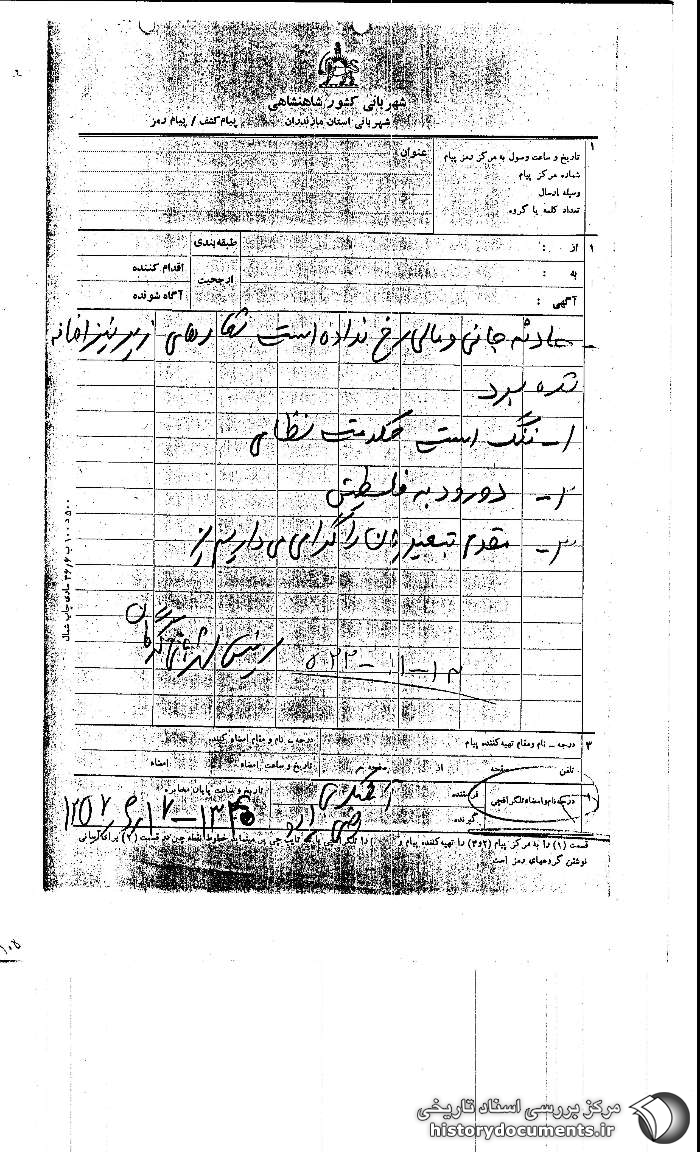 شهربانی کشور شاهنشاهی
شهربانی استان مازندران
پیام کشف / پیام رمز
۱
تاریخ و ساعت وصول به مرکز رمز پیام
شماره مرکز پیام
وسیله ارسال
تعداد کلمه یا گروه
عنوان
۱ از :
به :
آگهی :
طبقه‌بندی
ارجحیت
اقدام کننده
آگاه شونده
- حادثه جانی و مالی رخ نداده است شعارهای زیر نیز اضافه
شده بود
۱- ننگ است حکومت نظامی
۲- درود به فلسطین
۳- مقدم تبعیدیان را گرامی می‌داریم
رئیس شهربانی گرگان
۳ درجه - نام و مقام تهیه کننده پیام
درجه - نام و مقام امضاء کننده
تلفن صفحه از صفحه
تاریخ و ساعت امضاء امضاء
درجه نام و امضاء تلگرافچی
فرستنده
گیرنده
تاریخ و ساعت پایان مخابره
قسمت (۱) را به مرکز پیام (۲و۳) را تهیه‌کننده پیام و
نوشتن گروههای رمز است
مرکز بررسی اسناد تاریخی
historydocuments.ir